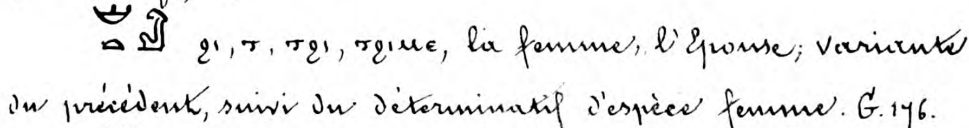 ϩι, т, тϩι, тϩιмε, la femme, l'Epouse; variante
du précédent, suivi du déterminatif d'espèce femme. G. 176.